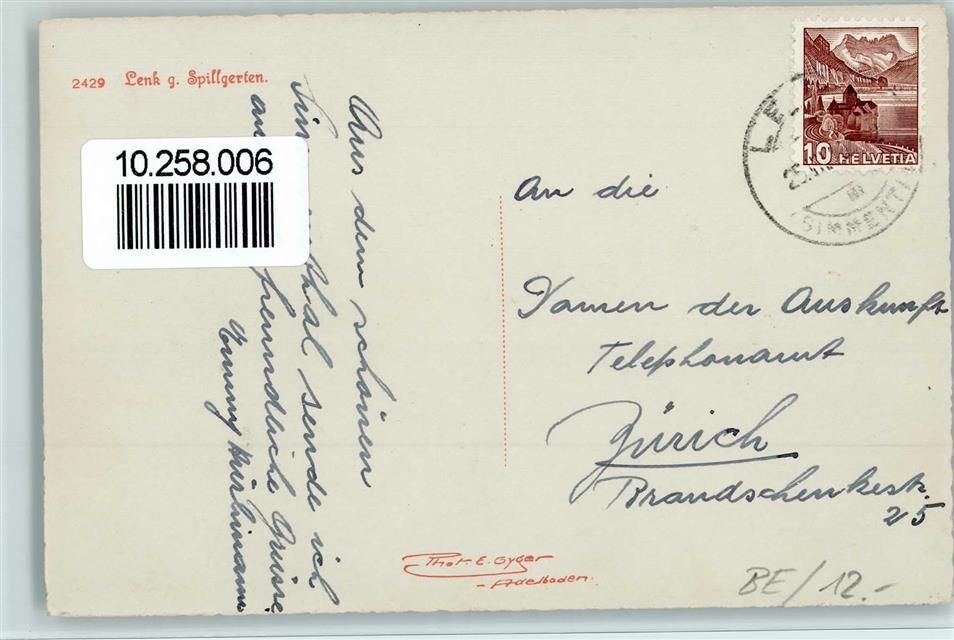 2429 Lenk g. Spillgerten.
10.258.006
Aus dem schönen
Sim thal sende ich
freundliche Grüsse
Emmy Hürlimann
10 HELVETIA
LE
25.
(SIMMENT
An die
Damen der Auskunft
Telephonamt
Zürich
Brandschenkestr.
25
Phot. E. Gyger
- Adelboden.
BE/12.-